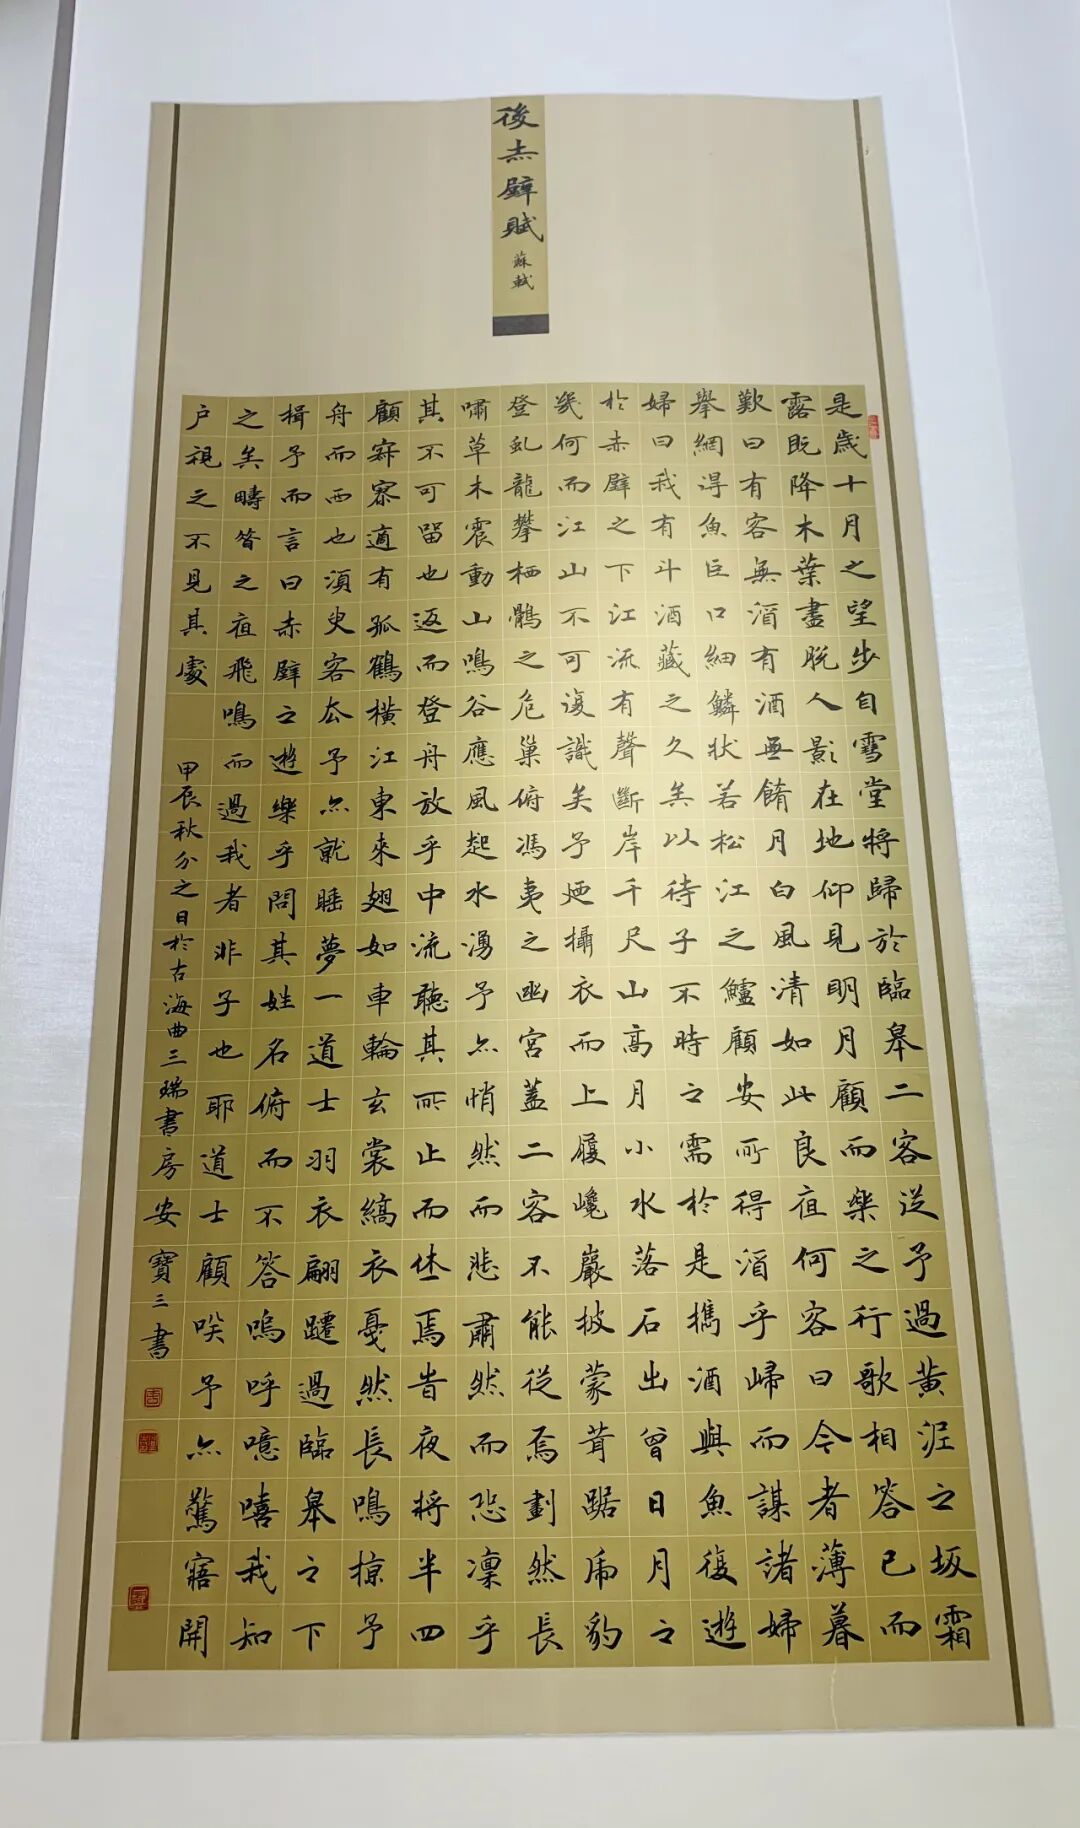 後赤壁賦
蘇軾
是歲十月之望步自雪堂將歸於臨皋二客從予過黃泥之坂霜
露既降木葉盡脫人影在地仰見明月顧而樂之行歌相答已而
歎曰有客無酒有酒無餚月白風清如此良夜何客曰今者薄暮
舉網得魚巨口細鱗狀若松江之鱸顧安所得酒乎歸而謀諸婦
婦曰我有斗酒藏之久矣以待子不時之需於是攜酒與魚復遊
於赤壁之下江流有聲斷岸千尺山高月小水落石出曾日月之
幾何而江山不可復識矣予迺攝衣而上履巉巖披蒙茸踞虎豹
登虬龍攀栖鶻之危巢俯馮夷之幽宮蓋二客不能從焉劃然長
嘯草木震動山鳴谷應風起水湧予亦悄然而悲肅然而恐凜乎
其不可留也返而登舟放乎中流聽其所止而休焉旹夜將半四
顧寂寥適有孤鶴橫江東來翅如車輪玄裳縞衣戛然長鳴掠予
舟而西也須臾客去予亦就睡夢一道士羽衣翩躚過臨皋之下
揖予而言曰赤壁之遊樂乎問其姓名俯而不答嗚呼噫嘻我知
之矣疇昔之夜飛鳴而過我者非子也耶道士顧笑予亦驚寤開
户視之不見其處
甲辰秋分之日於古海曲三瑞書房安寶三書